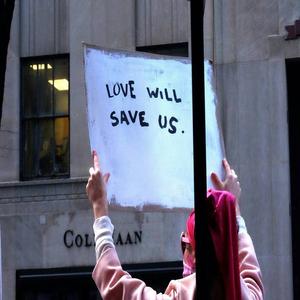 LOVE WILL
SAVE US.
COLE HAAN